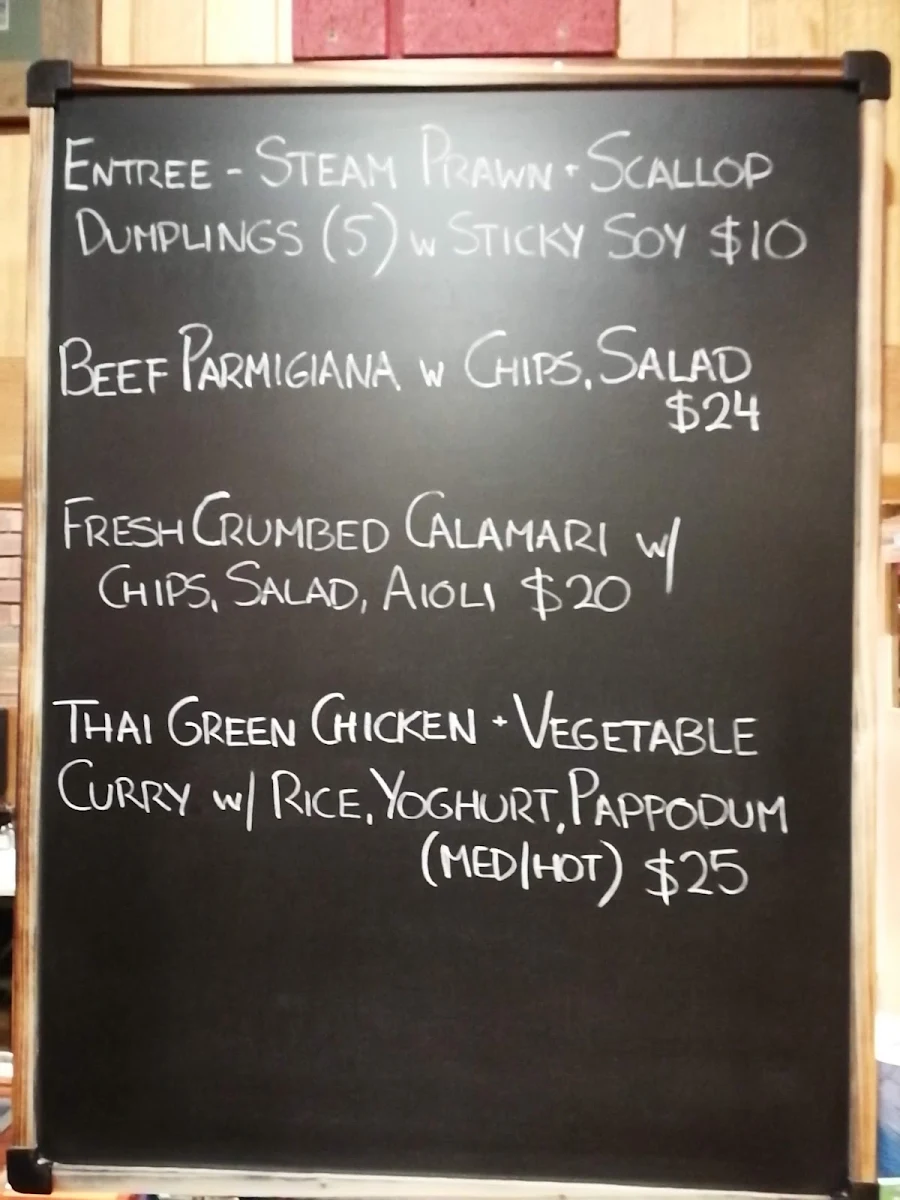 ENTREE - STEAM PRAWN + SCALLOP
DUMPLINGS (5) w STICKY SOY $10
BEEF PARMIGIANA w CHIPS, SALAD
$24
FRESH CRUMBED CALAMARI w/
CHIPS, SALAD, AIOLI $20
THAI GREEN CHICKEN + VEGETABLE
CURRY w/ RICE, YOGHURT, PAPPODUM
(MED/HOT) $25